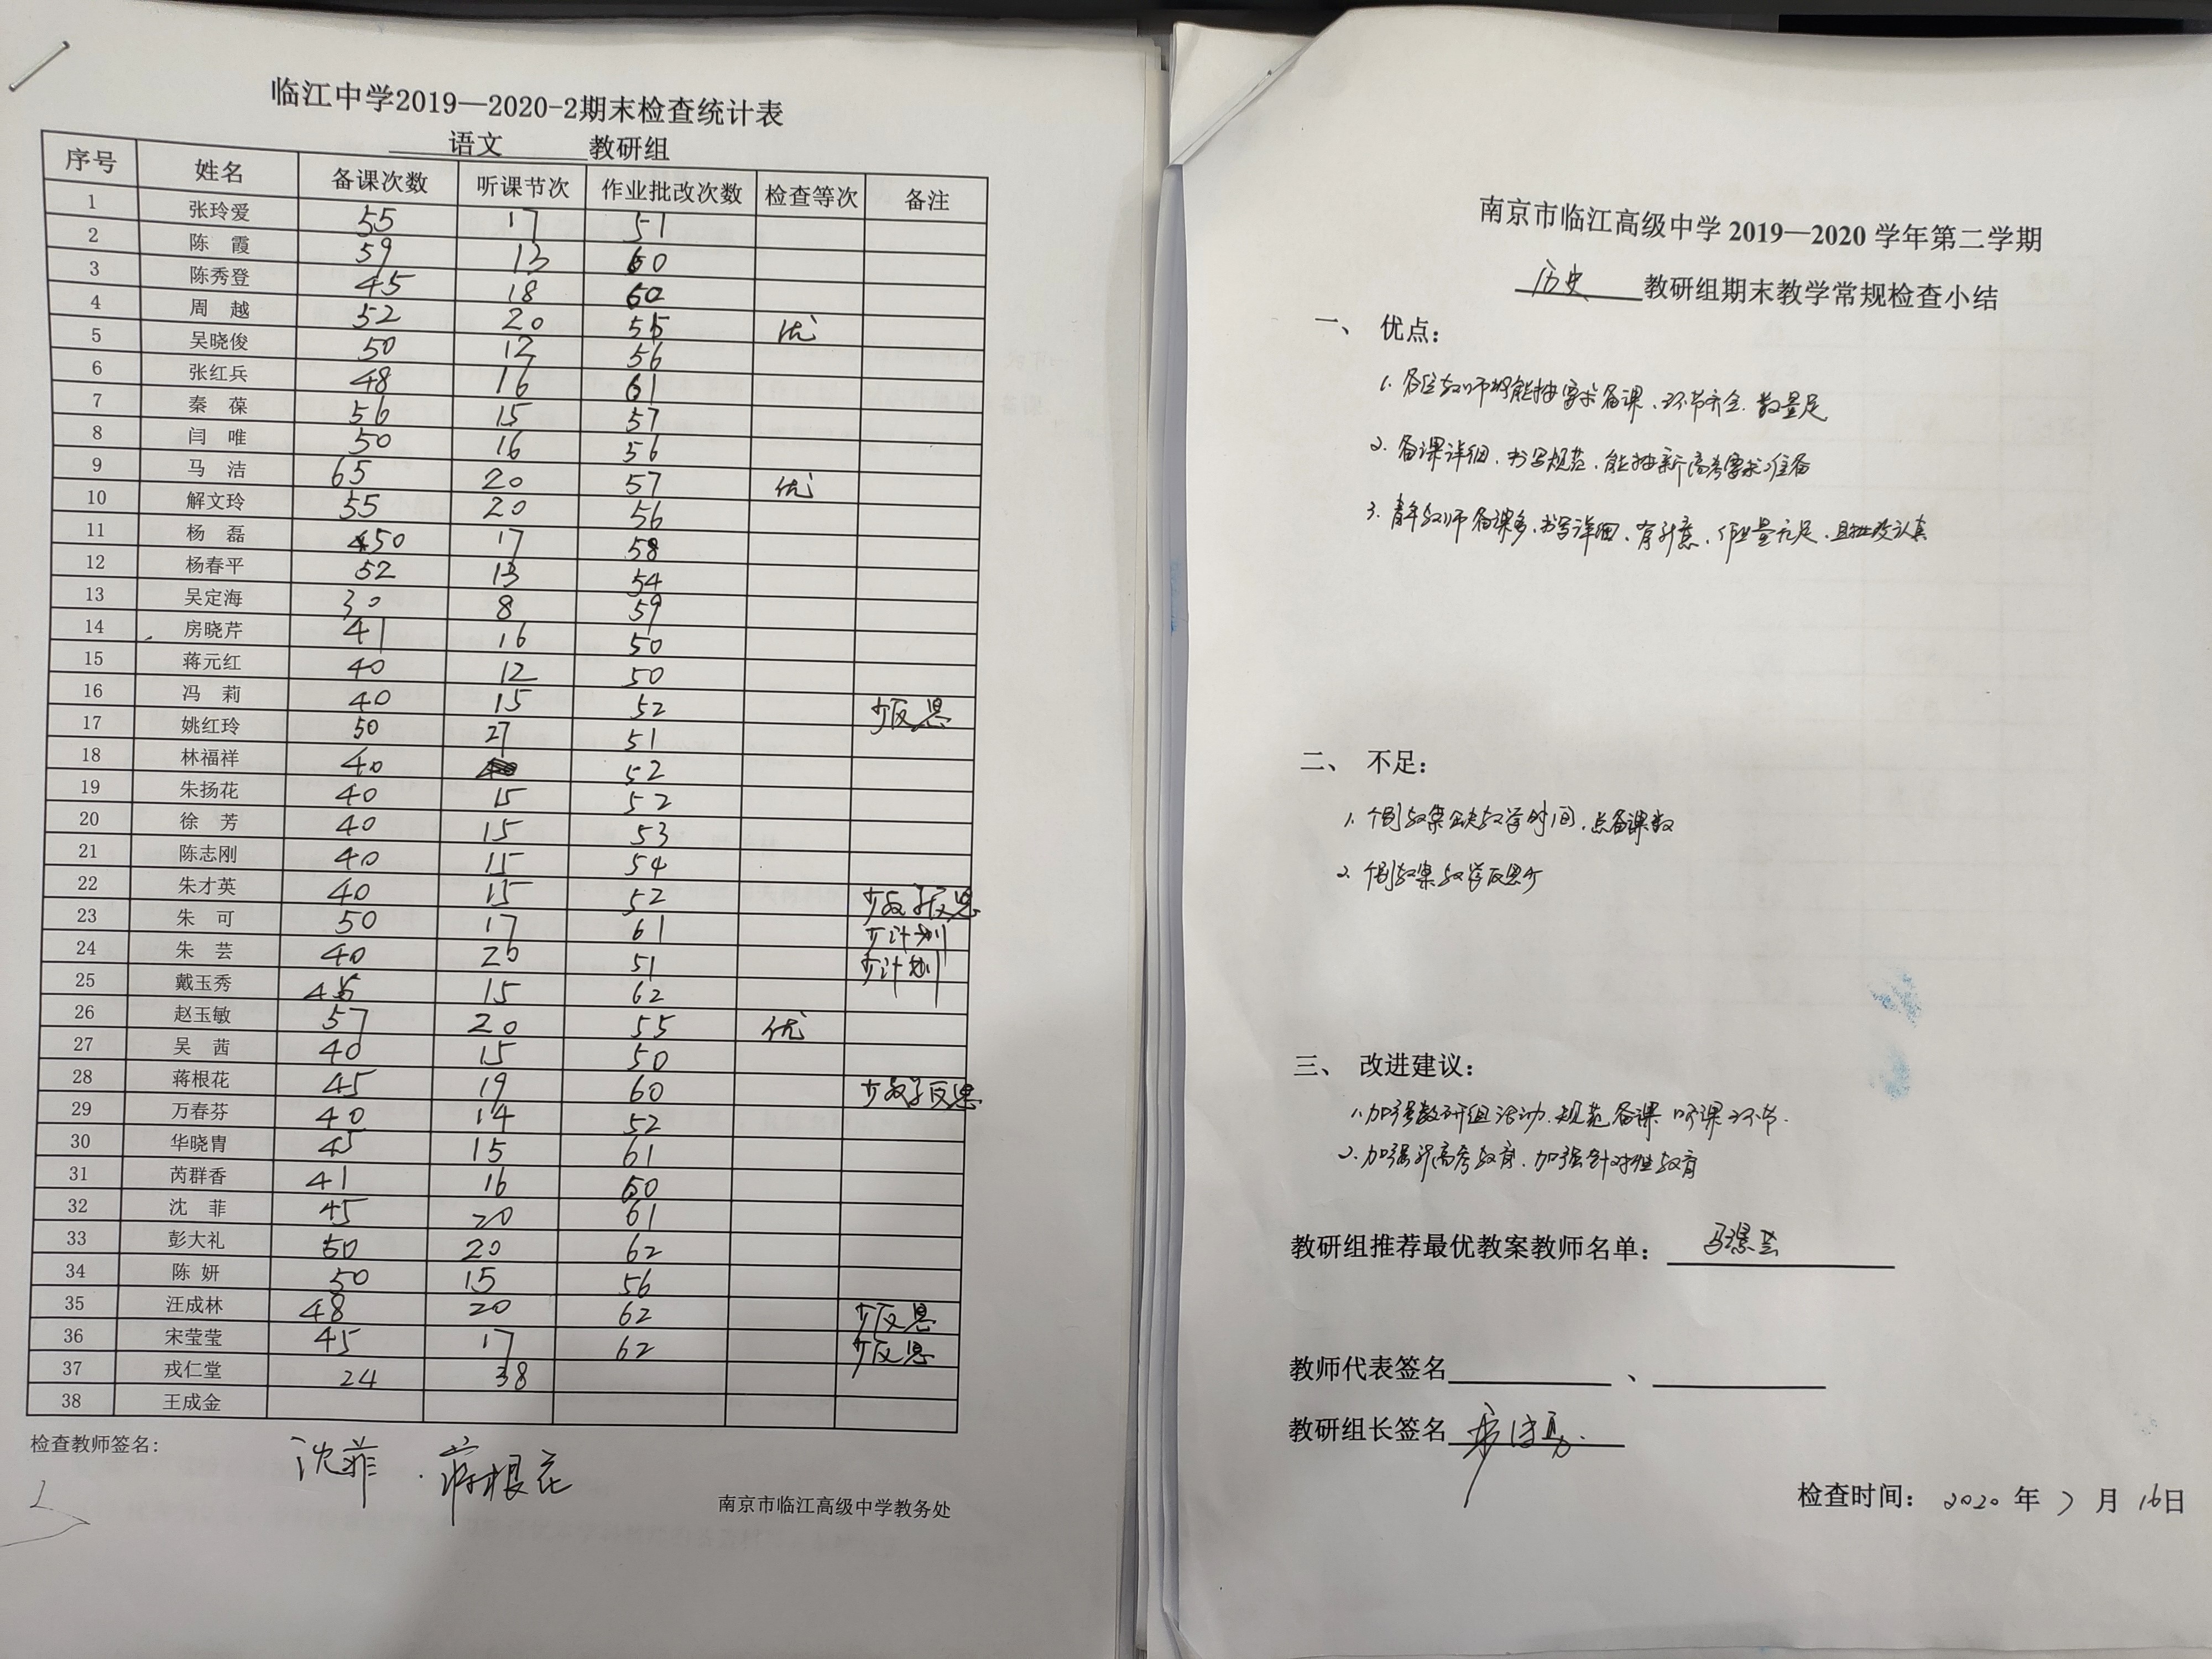 临江中学2019—2020-2期末检查统计表
语文 教研组
序号 姓名 备课次数 听课节次 作业批改次数 检查等次 备注
1 张玲爱 55 17 51
2 陈 霞 59 13 60
3 陈秀登 45 18 60
4 周 越 52 20 55 优
5 吴晓俊 50 12 56
6 张红兵 48 16 61
7 秦 葆 56 15 57
8 闫 唯 50 16 56
9 马 洁 65 20 57 优
10 解文玲 55 20 56
11 杨 磊 50 17 58
12 杨春平 52 13 54
13 吴定海 30 8 59
14 房晓芹 41 16 50
15 蒋元红 40 12 50
16 冯 莉 40 15 52 少反思
17 姚红玲 50 27 51
18 林福祥 40 52
19 朱扬花 40 15 52
20 徐 芳 40 15 53
21 陈志刚 40 15 54
22 朱才英 40 15 52 少教学反思
23 朱 可 50 17 61 少计划
24 朱 芸 40 20 51 少计划
25 戴玉秀 45 15 62
26 赵玉敏 57 20 55 优
27 吴 茜 40 15 50
28 蒋根花 45 19 60 少教学反思
29 万春芬 40 14 52
30 华晓胄 45 15 61
31 芮群香 41 16 60
32 沈 菲 45 20 61
33 彭大礼 50 20 62
34 陈 妍 50 15 56
35 汪成林 48 20 62 少反思
36 宋莹莹 45 17 62 少反思
37 戎仁堂 24 38
38 王成金
检查教师签名: 沈菲 . 蒋根花
南京市临江高级中学教务处
南京市临江高级中学 2019—2020 学年第二学期
历史 教研组期末教学常规检查小结
一、 优点：
1. 各位教师都能按要求备课、环节齐全. 数量足
2. 备课详细、书写规范、能按新高考要求准备
3. 青年教师备课多、书写详细、有新意、作业量充足、且批改认真
二、 不足：
1. 个别教案缺教学时间、总备课数
2. 个别教案教学反思少
三、 改进建议：
1. 加强教研组活动. 规范备课 听课环节.
2. 加强新高考教育、加强针对性教育
教研组推荐最优教案教师名单：
教师代表签名 、
教研组长签名
检查时间： 2020 年 7 月 16日